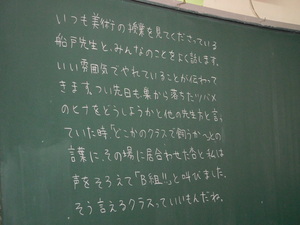 いつも美術の授業を見てくださっている
船戸先生と、みんなのことをよく話します。
いい雰囲気でやれていることが伝わって
きます。つい先日も巣から落ちたツバメ
のヒナをどうしようかと他の先生方と言っ
ていた時「どこかのクラスで飼うかー」との
言葉に、その場に居合わせた と私は
声をそろえて「B組!!」と叫びました。
そう言えるクラスっていいもんだね。